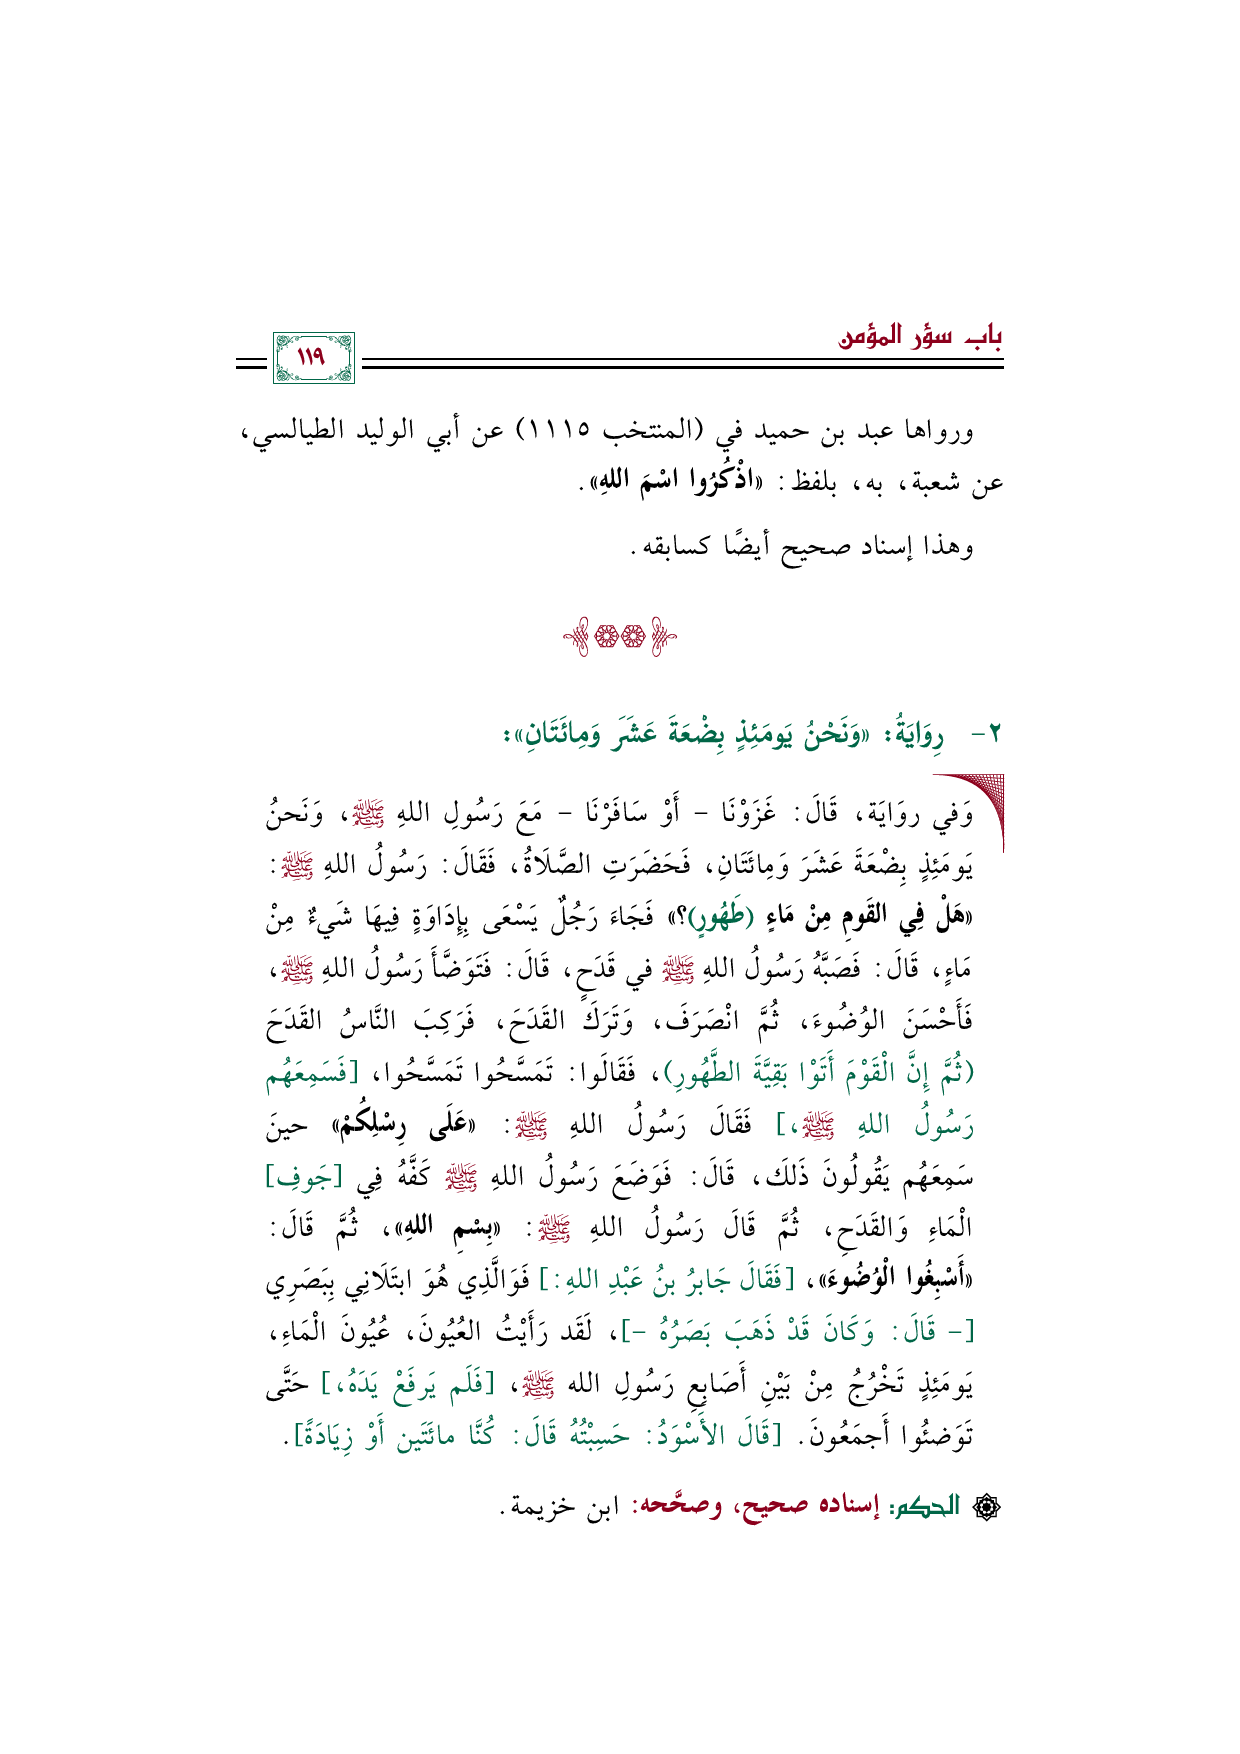 باب سؤر المؤمن
١١٩
ورواها عبد بن حميد في (المنتخب ١١١٥) عن أبي الوليد الطيالسي،
عن شعبة، به، بلفظ: «اذْكُرُوا اسْمَ اللهِ».
وهذا إسناد صحيح أيضًا كسابقه.
٢- رِوَايَةُ: «وَنَحْنُ يَومَئِذٍ بِضْعَةَ عَشَرَ وَمِائَتَانِ»:
وَفي روَايَة، قَالَ: غَزَوْنَا - أَوْ سَافَرْنَا - مَعَ رَسُولِ اللهِ ﷺ، وَنَحنُ
يَومَئِذٍ بِضْعَةَ عَشَرَ وَمِائَتَانِ، فَحَضَرَتِ الصَّلَاةُ، فَقَالَ: رَسُولُ اللهِ ﷺ:
«هَلْ فِي القَومِ مِنْ مَاءٍ (طَهُورٍ)؟» فَجَاءَ رَجُلٌ يَسْعَى بِإِدَاوَةٍ فِيهَا شَيءٌ مِنْ
مَاءٍ، قَالَ: فَصَبَّهُ رَسُولُ اللهِ ﷺ في قَدَحٍ، قَالَ: فَتَوَضَّأَ رَسُولُ اللهِ ﷺ،
فَأَحْسَنَ الوُضُوءَ، ثُمَّ انْصَرَفَ، وَتَرَكَ القَدَحَ، فَرَكِبَ النَّاسُ القَدَحَ
(ثُمَّ إِنَّ الْقَوْمَ أَتَوْا بَقِيَّةَ الطَّهُورِ)، فَقَالُوا: تَمَسَّحُوا تَمَسَّحُوا، [فَسَمِعَهُم
رَسُولُ اللهِ ﷺ،] فَقَالَ رَسُولُ اللهِ ﷺ: «عَلَى رِسْلِكُمْ» حينَ
سَمِعَهُم يَقُولُونَ ذَلكَ، قَالَ: فَوَضَعَ رَسُولُ اللهِ ﷺ كَفَّهُ فِي [جَوفِ]
الْمَاءِ وَالقَدَحِ، ثُمَّ قَالَ رَسُولُ اللهِ ﷺ: «بِسْمِ اللهِ»، ثُمَّ قَالَ:
«أَسْبِغُوا الْوُضُوءَ»، [فَقَالَ جَابرُ بنُ عَبْدِ اللهِ:] فَوَالَّذِي هُوَ ابتَلَانِي بِبَصَرِي
[- قَالَ: وَكَانَ قَدْ ذَهَبَ بَصَرُهُ -]، لَقَد رَأَيْتُ العُيُونَ، عُيُونَ الْمَاءِ،
يَومَئِذٍ تَخْرُجُ مِنْ بَيْنِ أَصَابِعِ رَسُولِ الله ﷺ، [فَلَم يَرفَعْ يَدَهُ،] حَتَّى
تَوَضئُوا أَجمَعُونَ. [قَالَ الأَسْوَدُ: حَسِبْتُهُ قَالَ: كُنَّا مائَتَين أَوْ زِيَادَةً].
الحكم: إسناده صحيح، وصحَّحه: ابن خزيمة.